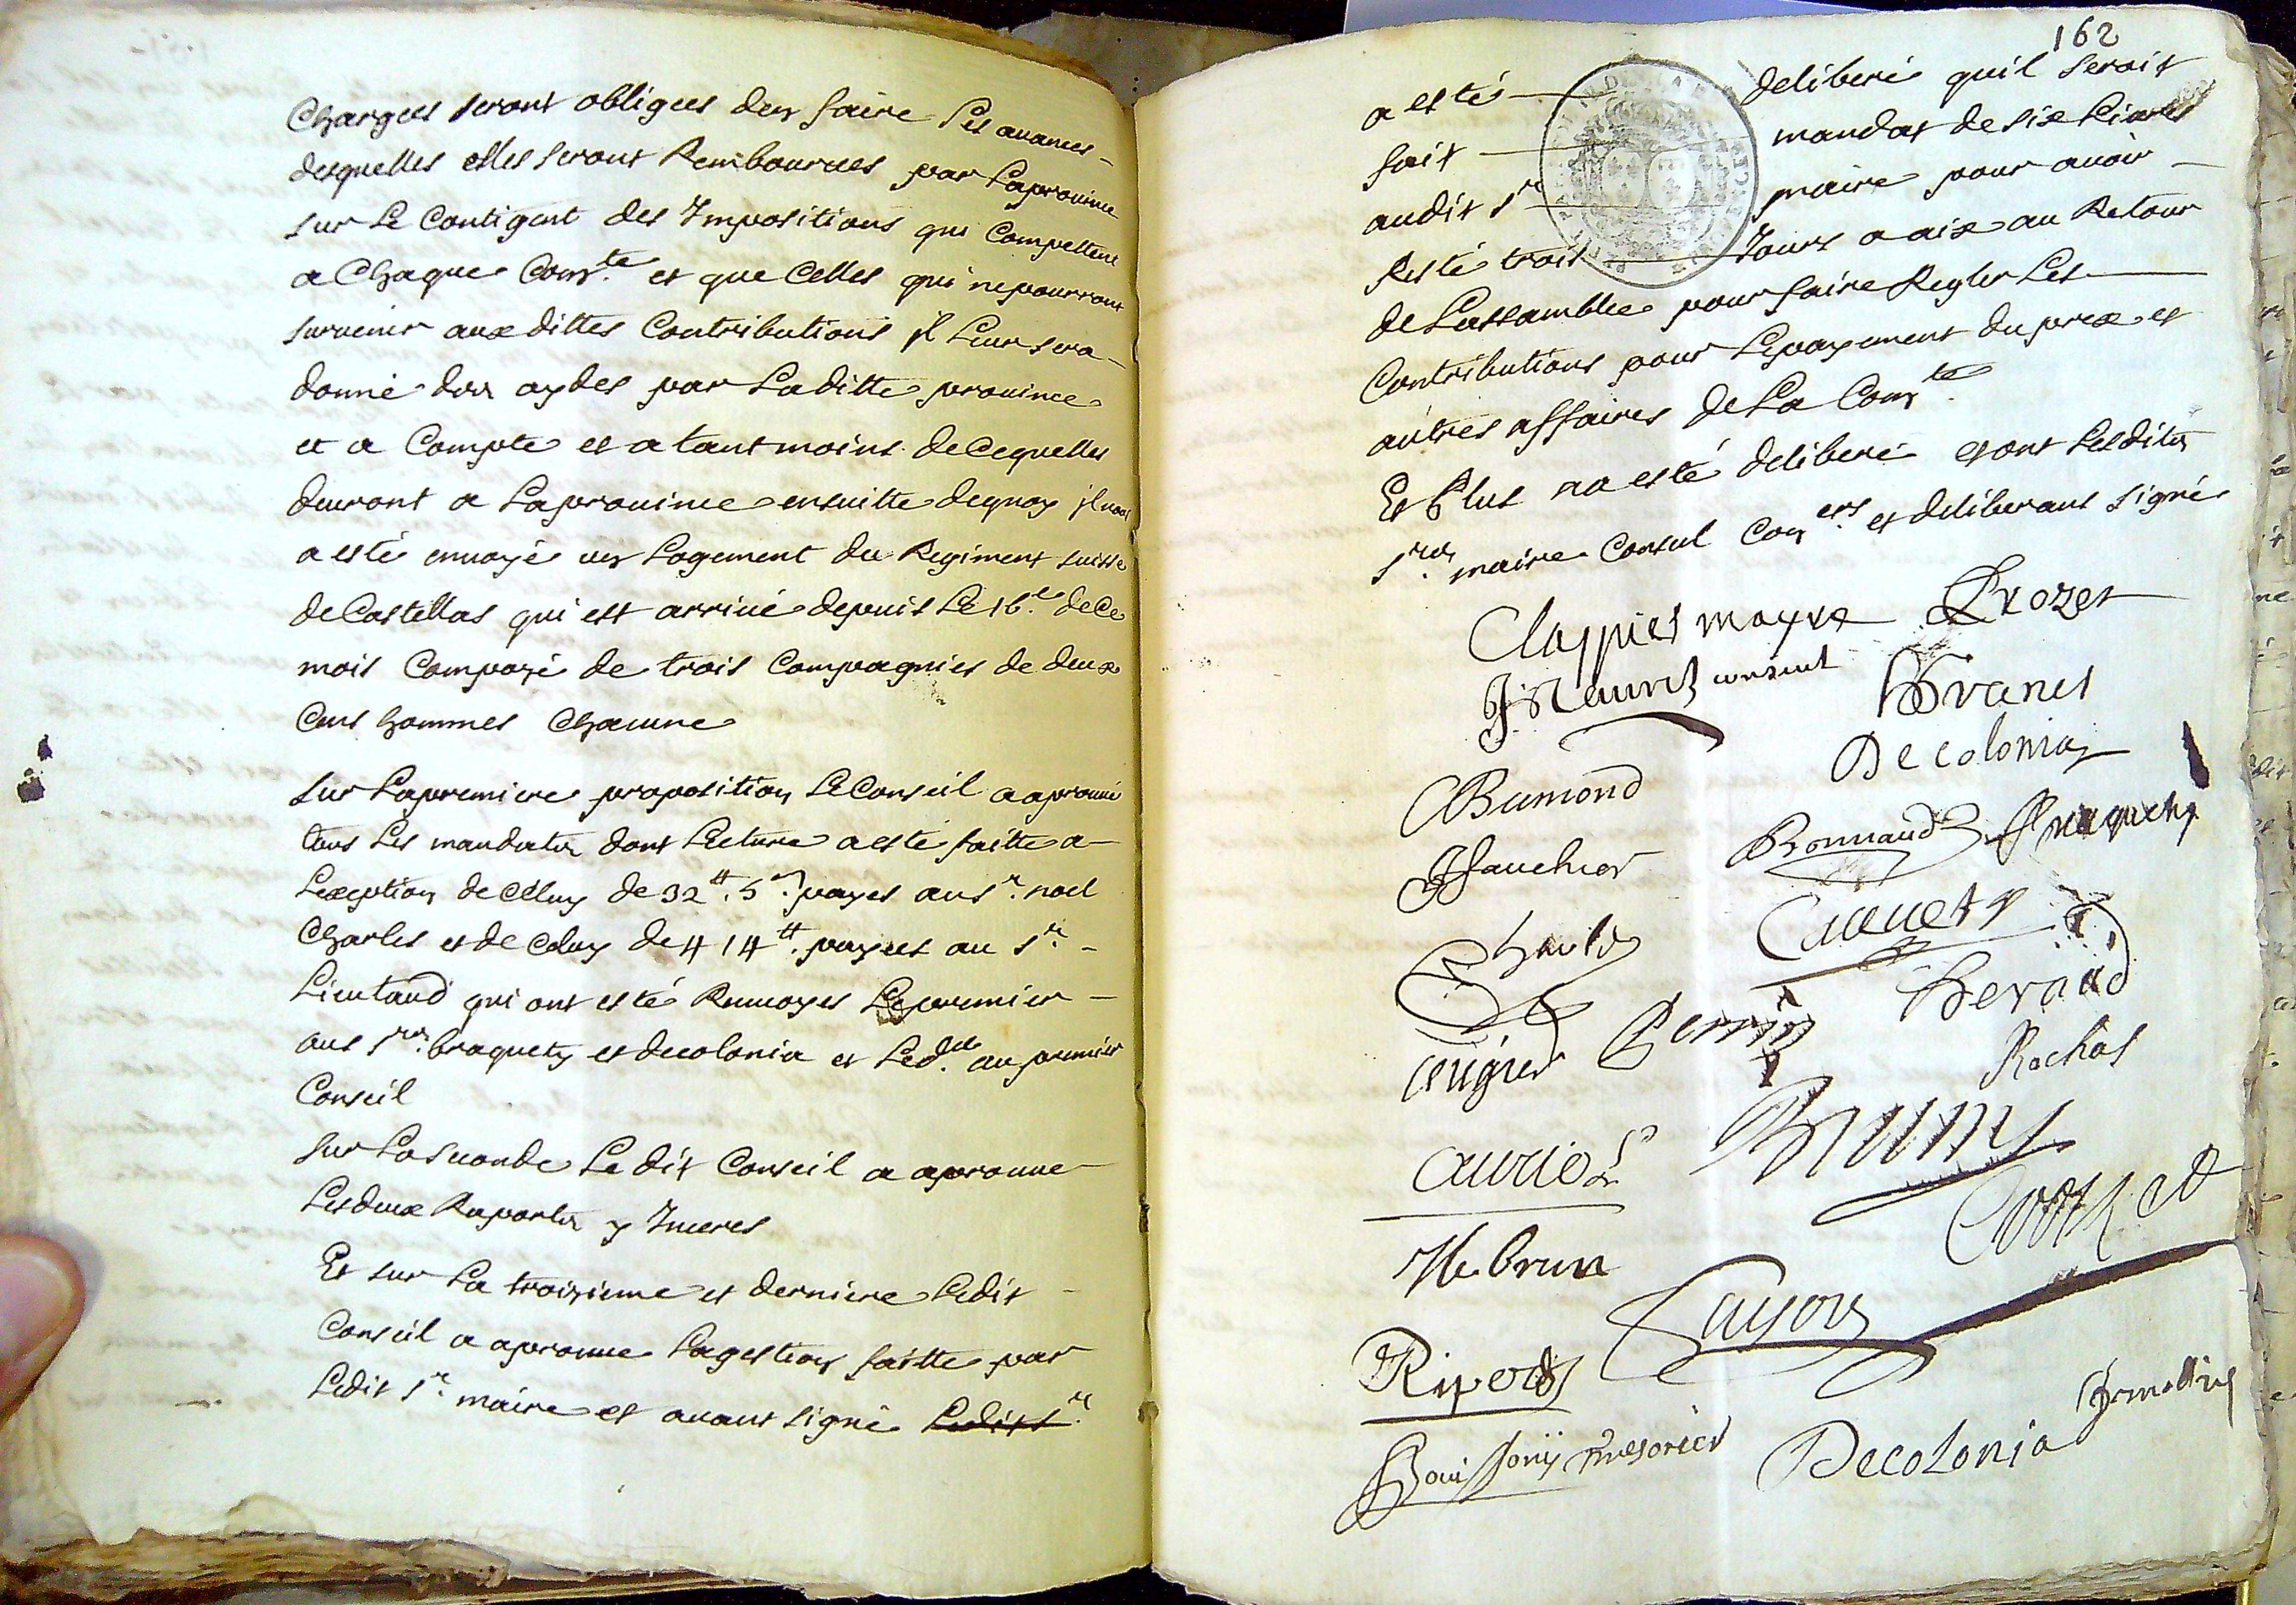 Chargees seront obligees den faire les avances
desquelles elles seront Rembourcees par La province
sur Le Contigent des Impositions qui Compettent
a Chaque Com.te et que Celles qui ne pourront
survenir aux dittes Contributions jl Leur sera
donné des aydes par La ditte province
et a Compte et a tant moins de Ce quelles
devront a La province ensuitte de quoy jl nous
a esté envoyé un Logement du Regiment suisse
de Castellas qui est arrivé depuis Le 16.e de Ce
mois Composé de trois Compagnies de deux
Cens hommes Chacune
sur La premiere proposition Le Conseil a aprouvé
tous Les mandats dont Lecture a esté faitte a
Lexeption de Celuy de 32 tt. 5 s. payés au sr. noel
Charles et de Celuy de 414 tt. payees au sr.
Lieutaud qui ont esté Renvoyés Le premier
aux srs. braquety et decolonia et Led. au premier
Conseil
sur La seconde Le dit Conseil a aprouvé
Les deux Raports y Inceres
Et sur La troizieme et derniere Ledit
Conseil a aprouvé La gestion faitte par
Ledit sr. maire et avant signé Ledit sr.
162
a esté deliberé quil seroit
fait mandat de six Livres
audit sr maire pour avoir
Resté trois Jours a aix au Retour
de Lassamblée pour faire Regler Les
Contributions pour Le payement du prex et
autres affaires de La Com.te
Et Plus na esté deliberé et ont Lesdits
srs. maire Consul Con.ers et deliberant signé
Clappiers mayre Crozet
consul
Decolonia
Bumond
fauchier Bonnaud Braquety
Cauvet
Beraud
augier Perrin
Rochas
auriol Bruny
H Brun
Layon
Ripert
Bouissony tresorier Decolonia